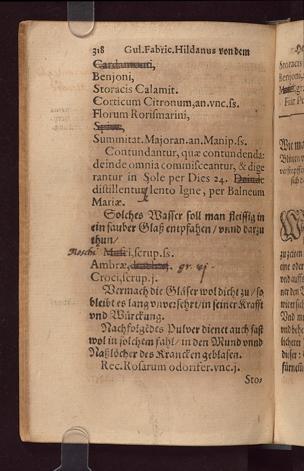 318 Gul. Fabric. Hildanus von dem
Cardamomi,
Benjoni,
Storacis Calamit.
Corticum Citronum, an. vnc. ss.
Florum Rorismarini,
Spicæ,
Summitat. Majoran. an. Manip. ss.
Contundantur, quæ contundenda:
deinde omnia commisceantur, & dige
rantur in Sole per Dies 24. Deinde
distillentur lento Igne, per Balneum
Mariæ.
Solches Wasser soll man fleissig in
ein sauber Glaß empfahen / vnnd darzu
thun /
Moschi Musci, scrup. ss.
Ambræ, gr. vj.
Croci, scrup. j.
Vermach die Gläser wol dicht zu / so
bleibt es lang vnversehrt / in seiner Krafft
vnd Würckung.
Nachfolgēdes Pulver dienet auch fast
wol in solchem fahl / in den Mund vnnd
Naßlöcher des Krancken geblasen.
Rec. Rosarum odorifer. vnc. j.
Sto-